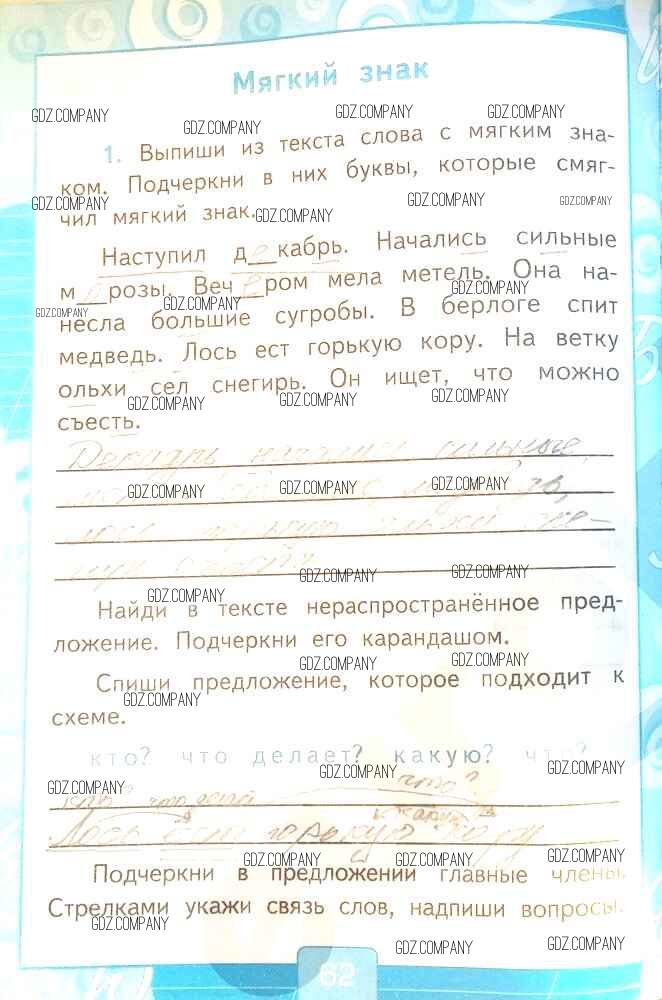 Мягкий знак
GDZ.COMPANY GDZ.COMPANY GDZ.COMPANY GDZ.COMPANY
1. Выпиши из текста слова с мягким зна-
ком. Подчеркни в них буквы, которые смяг-
GDZ.COMPANY GDZ.COMPANY GDZ.COMPANY GDZ.COMPANY
чил мягкий знак.
Наступил декабрь. Начались сильные
морозы. Вечером мела метель. Она на-
GDZ.COMPANY GDZ.COMPANY GDZ.COMPANY
несла большие сугробы. В берлоге спит
медведь. Лось ест горькую кору. На ветку
ольхи сел снегирь. Он ищет, что можно
GDZ.COMPANY GDZ.COMPANY GDZ.COMPANY
съесть.
Декабрь начались сильные,
GDZ.COMPANY GDZ.COMPANY GDZ.COMPANY
GDZ.COMPANY GDZ.COMPANY GDZ.COMPANY
Найди в тексте нераспространённое пред-
ложение. Подчеркни его карандашом.
GDZ.COMPANY GDZ.COMPANY
Спиши предложение, которое подходит к
GDZ.COMPANY
схеме.
кто? что делает? какую? что?
GDZ.COMPANY GDZ.COMPANY GDZ.COMPANY
что?
Лось ест горькую кору
GDZ.COMPANY GDZ.COMPANY GDZ.COMPANY
Подчеркни в предложении главные члены.
Стрелками укажи связь слов, надпиши вопросы.
GDZ.COMPANY GDZ.COMPANY GDZ.COMPANY
62